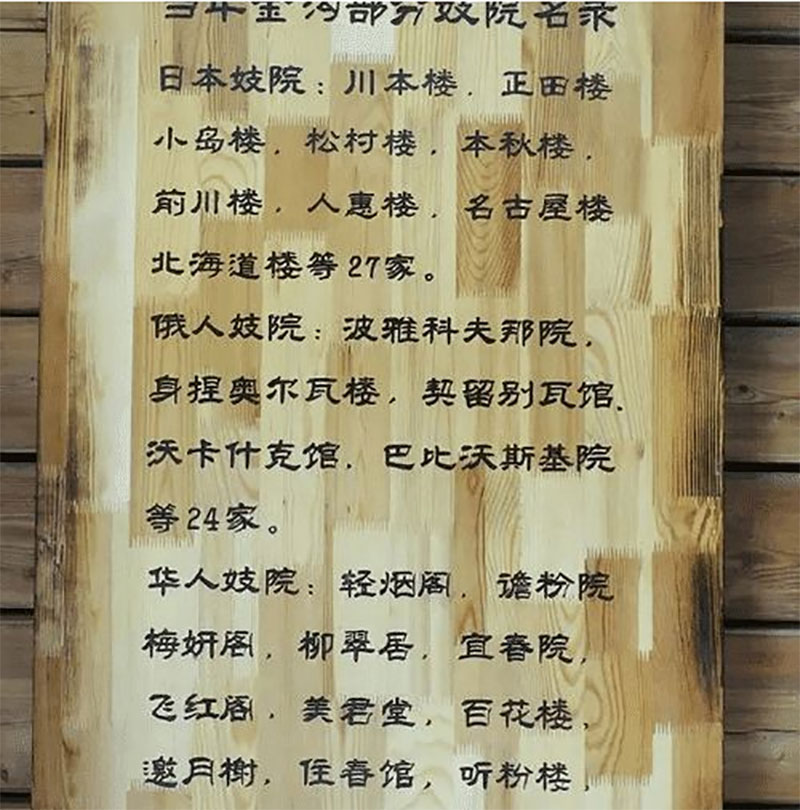 当年金沟部分妓院名录
日本妓院：川本楼．正田楼
小岛楼．松村楼．本秋楼．
前川楼．人惠楼．名古屋楼
北海道楼等27家。
俄人妓院：波雅科夫那院．
身捏奥尔瓦楼，契留别瓦馆．
沃卡什克馆．巴比沃斯基院
等24家。
华人妓院：轻烟阁．谵粉院
梅妍阁．柳翠居．宜春院．
飞红阁．美君堂，百花楼．
邀月榭．住春馆，听粉楼．